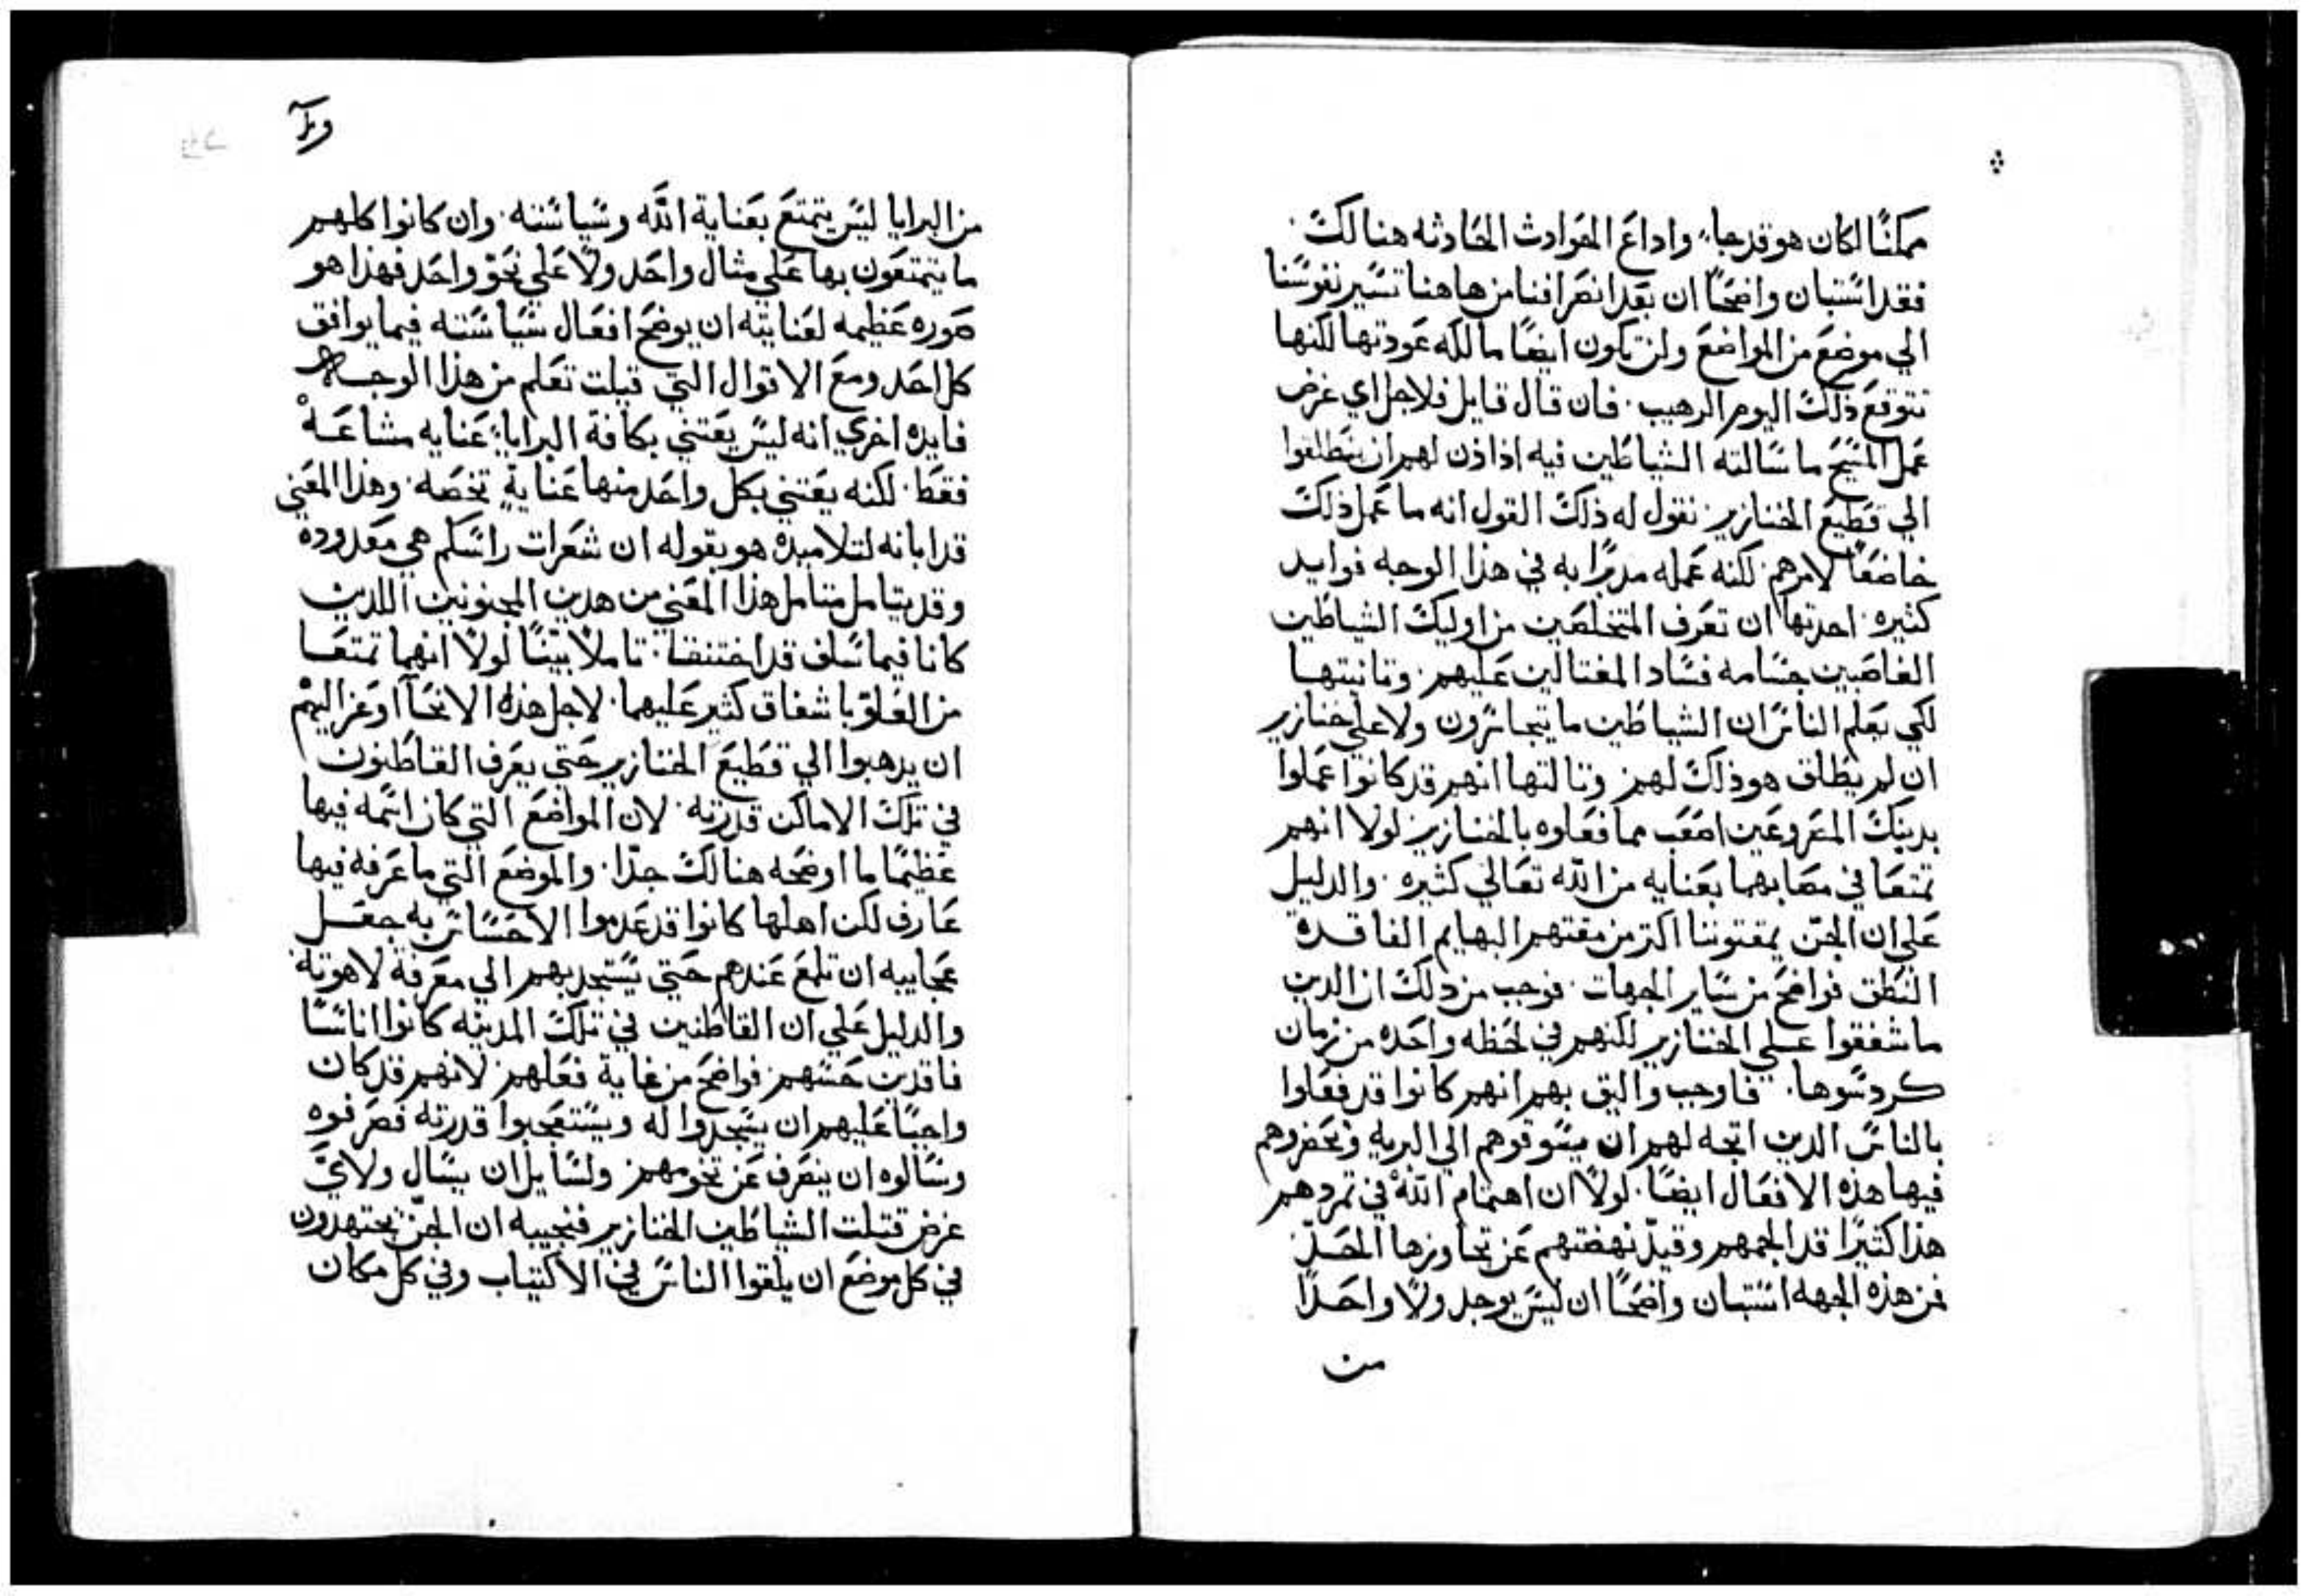 ممكنًا لكان هو قد جا، واداع الحوادث الحادثه هنالك
فقد استبان واضحًا ان بعد انصرافنا من هاهنا تسير نفوسنا
الي موضع من المواضع ولن تكون ايضًا مالكه عودتها لكنها
تتوقع ذلك اليوم الرهيب. فان قال قايل فلاجل اي غرض
عمل المسيح ما سالته الشياطين فيه اذ اذن لهم ان ينطلقوا
الي قطيع الخنازير نقول له ذلك القول انه ما عمل ذلك
خاضعًا لامرهم. لكنه عمله مدبرًا به في هذا الوجه فوايد
كثيره. احدتها ان تعرف المتخلصين من اوليك الشياطين
الغاصبين جسامه فساد المغتالين عليهم. وتانيتها
لكي يعلم الناس ان الشياطين ما يتجاسرون ولا علي خنازير
ان لم يطلق هو ذلك لهم. وتالتها انهم قد كانوا عملوا
بدينك المصروعين اصعب مما فعلوه بالخنازير لولا انهم
تمتعا في مصابهما بعنايه من الله تعالي كثيره. والدليل
علي ان الجن يمقتوننا اكتر من مقتهم البهايم الفاقدة
النطق فواضح من ساير الجهات. فوجب من دلك ان الدين
ما شفقوا علي الخنازير لكنهم في لحظه واحده من زمان
كردسوها. فاوجب واليق بهم انهم كانوا قد فعلوا
بالناس الدين اتجه لهم ان يسوقوهم الي البريه وتحضروهم
فيها هذه الافعال ايضًا. لولا ان اهتمام الله في تمردهم
هذا كثيرًا قد الجمهم وقيد نهضتهم عن تجاوزها الحد
فمن هذه الجهه استبان واضحًا ان ليس يوجد ولا واحدًا
من
من البرايا ليس يتمتع بعناية الله وسياسته. وان كانوا كلهم
ما يتمتعون بها علي مثال واحد ولا علي نحو واحد فهذا هو
صوره عظيمه لعنايته ان يوضح افعال سياسته فيما يوافق
كل احد ومع الاقوال التي قيلت تعلم من هذا الوجه
فايده اخري انه ليس يعتني بكافة البرايا عنايه مشاعة
فقط. لكنه يعتني بكل واحد منها عناية تخصه. وهذا المعني
قد ابانه لتلاميذه هو بقوله ان شعرات راسكم هي معدوده
وقد يتامل متامل هذا المعني من هدين المجنونين اللدين
كانا فيما سلف قد اختنقا. تاملًا بينًا لولا انهما تمتعا
من العلو باشفاق كثير عليهما. لاجل هذه الانحآ اوعز اليهم
ان يدهبوا الي قطيع الخنازير حتي يعرف القاطنون
في تلك الاماكن قدرته. لان المواضع التي كان اسمه فيها
عظيمًا ما اوضحه هنالك جدًا. والموضع التي ما عرفه فيها
عارف لكن اهلها كانوا قد عدموا الاحساس به جعل
عجايبه ان تلمع عندهم حتي يستجدبهم الي معرفة لاهوته
والدليل علي ان القاطنين في تلك المدينه كانوا اناسًا
فاقدين حسهم فواضح من غاية فعلهم. لانهم قد كان
واجبًا عليهم ان يسجدوا له ويستعجبوا قدرته فصرفوه
وسالوه ان ينصرف عن تخومهم. ولسايل ان يسال ولاي
غرض قتلت الشياطين الخنازير فنجيبه ان الجن يجتهدون
في كل موضع ان يلقوا الناس في الاكتياب وفي كل مكان